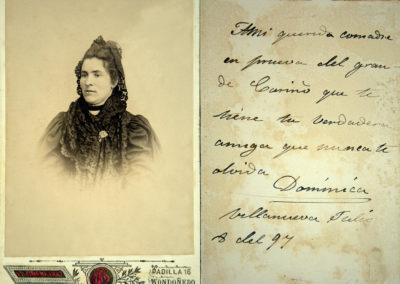 PADILLA 16
MONDOÑEDO
A mi querida comadre
en prueva del gran-
de Cariño que te
tiene tu verdadera
amiga que nunca te
olvida
Dominica
Villanueva Julio
8 del 97